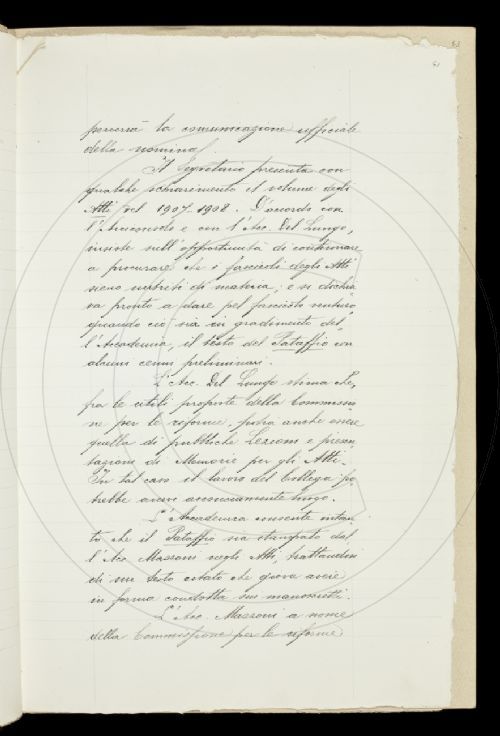 51
51
perverrà la comunicazione ufficiale
della nomina.
Il Segretario presenta con
qualche schiarimento il volume degli
Atti del 1907-1908. D'accordo con
l'Arciconsolo e con l'Acc. Del Lungo,
insiste sull'opportunità di continuare
a procurare che i fascicoli degli Atti
sieno nutriti di materia; e si dichia
ra pronto a dare pel fascicolo venturo,
quando ciò sia in gradimento del
l'Accademia, il testo del Pataffio con
alcuni cenni preliminari.
L'Acc. Del Lungo stima che,
fra le utili proposte della Commissio
ne per le riforme, potrà anche essere
quella di pubbliche Lezioni e presen
tazione di Memorie per gli Atti.
In tal caso il lavoro del Collega po
trebbe avere acconciamente luogo.
L'Accademia consente intan
to che il Pataffio sia stampato dal
l'Acc. Mazzoni negli Atti, trattandosi
di un testo citato che giova avere
in forma condotta sui manoscritti.
L'Acc. Mazzoni a nome
della Commissione per le riforme